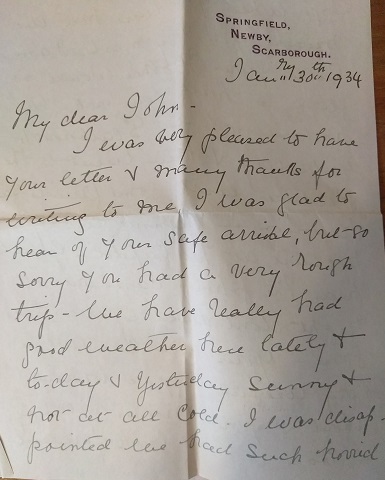 SPRINGFIELD,
NEWBY,
SCARBOROUGH.
Janry 30th 1934
My dear John -
I was very pleased to have
your letter & many thanks for
writing to me, I was glad to
hear of your safe arrival, but so
sorry you had a very rough
trip - We have really had
good weather here lately &
to-day & yesterday sunny &
not at all cold. I was disap-
pointed we had such horrid